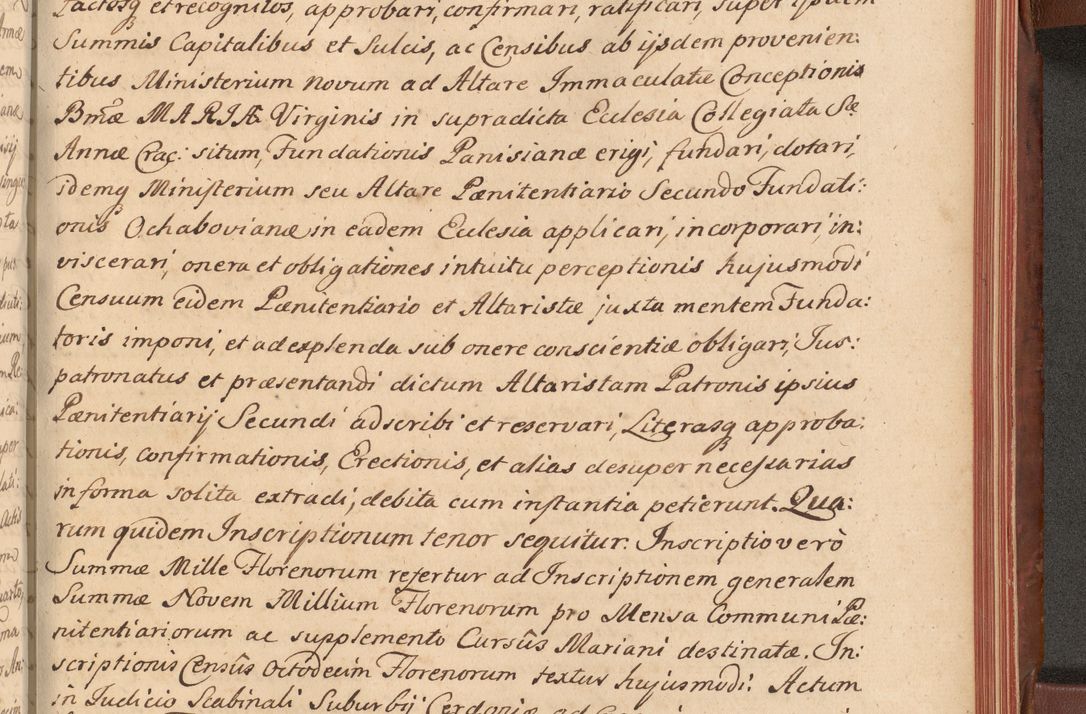 factosq et recognitos, approbari, confirmari, ratificari, super ipsdem
Summis Capitalibus et Sulcis, ac Censibus ab ijsdem provenien:
tibus Ministerium novum ad Altare Immaculatæ Conceptionis
Bmæ MARIÆ Virginis in supradicta Ecclesia Collegiata Sæ
Annæ Crac: situm, Fundationis Panisianæ erigi, fundari, dotari,
idemq Ministerium seu Altare Pœnitentiario Secundo Fundati:
onis Ochabovianæ in eâdem Ecclesia applicari, incorporari, in:
viscerari, onera et obligationes intuitu perceptionis hujusmodi
Censuum eidem Pœnitentiario et Altaristæ juxta mentem Funda:
toris imponi, et ad explenda sub onere conscientiæ obligari, Jus:
patronatus et præsentandi dictum Altaristam Patronis ipsius
Pœnitentiarij Secundi adscribi et reservari, Literasq approba:
tionis, confirmationis, Erectionis, et alias desuper necessarias
in forma solita extradi, debita cum instantia petierunt. Qua:
rum quidem Inscriptionum tenor sequitur: Inscriptio verò
Summæ Mille Florenorum refertur ad Inscriptionem generalem
Summæ Novem Millium Florenorum pro Mensa Communi Pæ:
nitentiariorum ac supplemento Cursûs Mariani destinatæ. In:
scriptionis Censûs Octodecim Florenorum textus hujusmodi: Actum
in Judicio Scabinali Suburbij Cerdoniæ ad